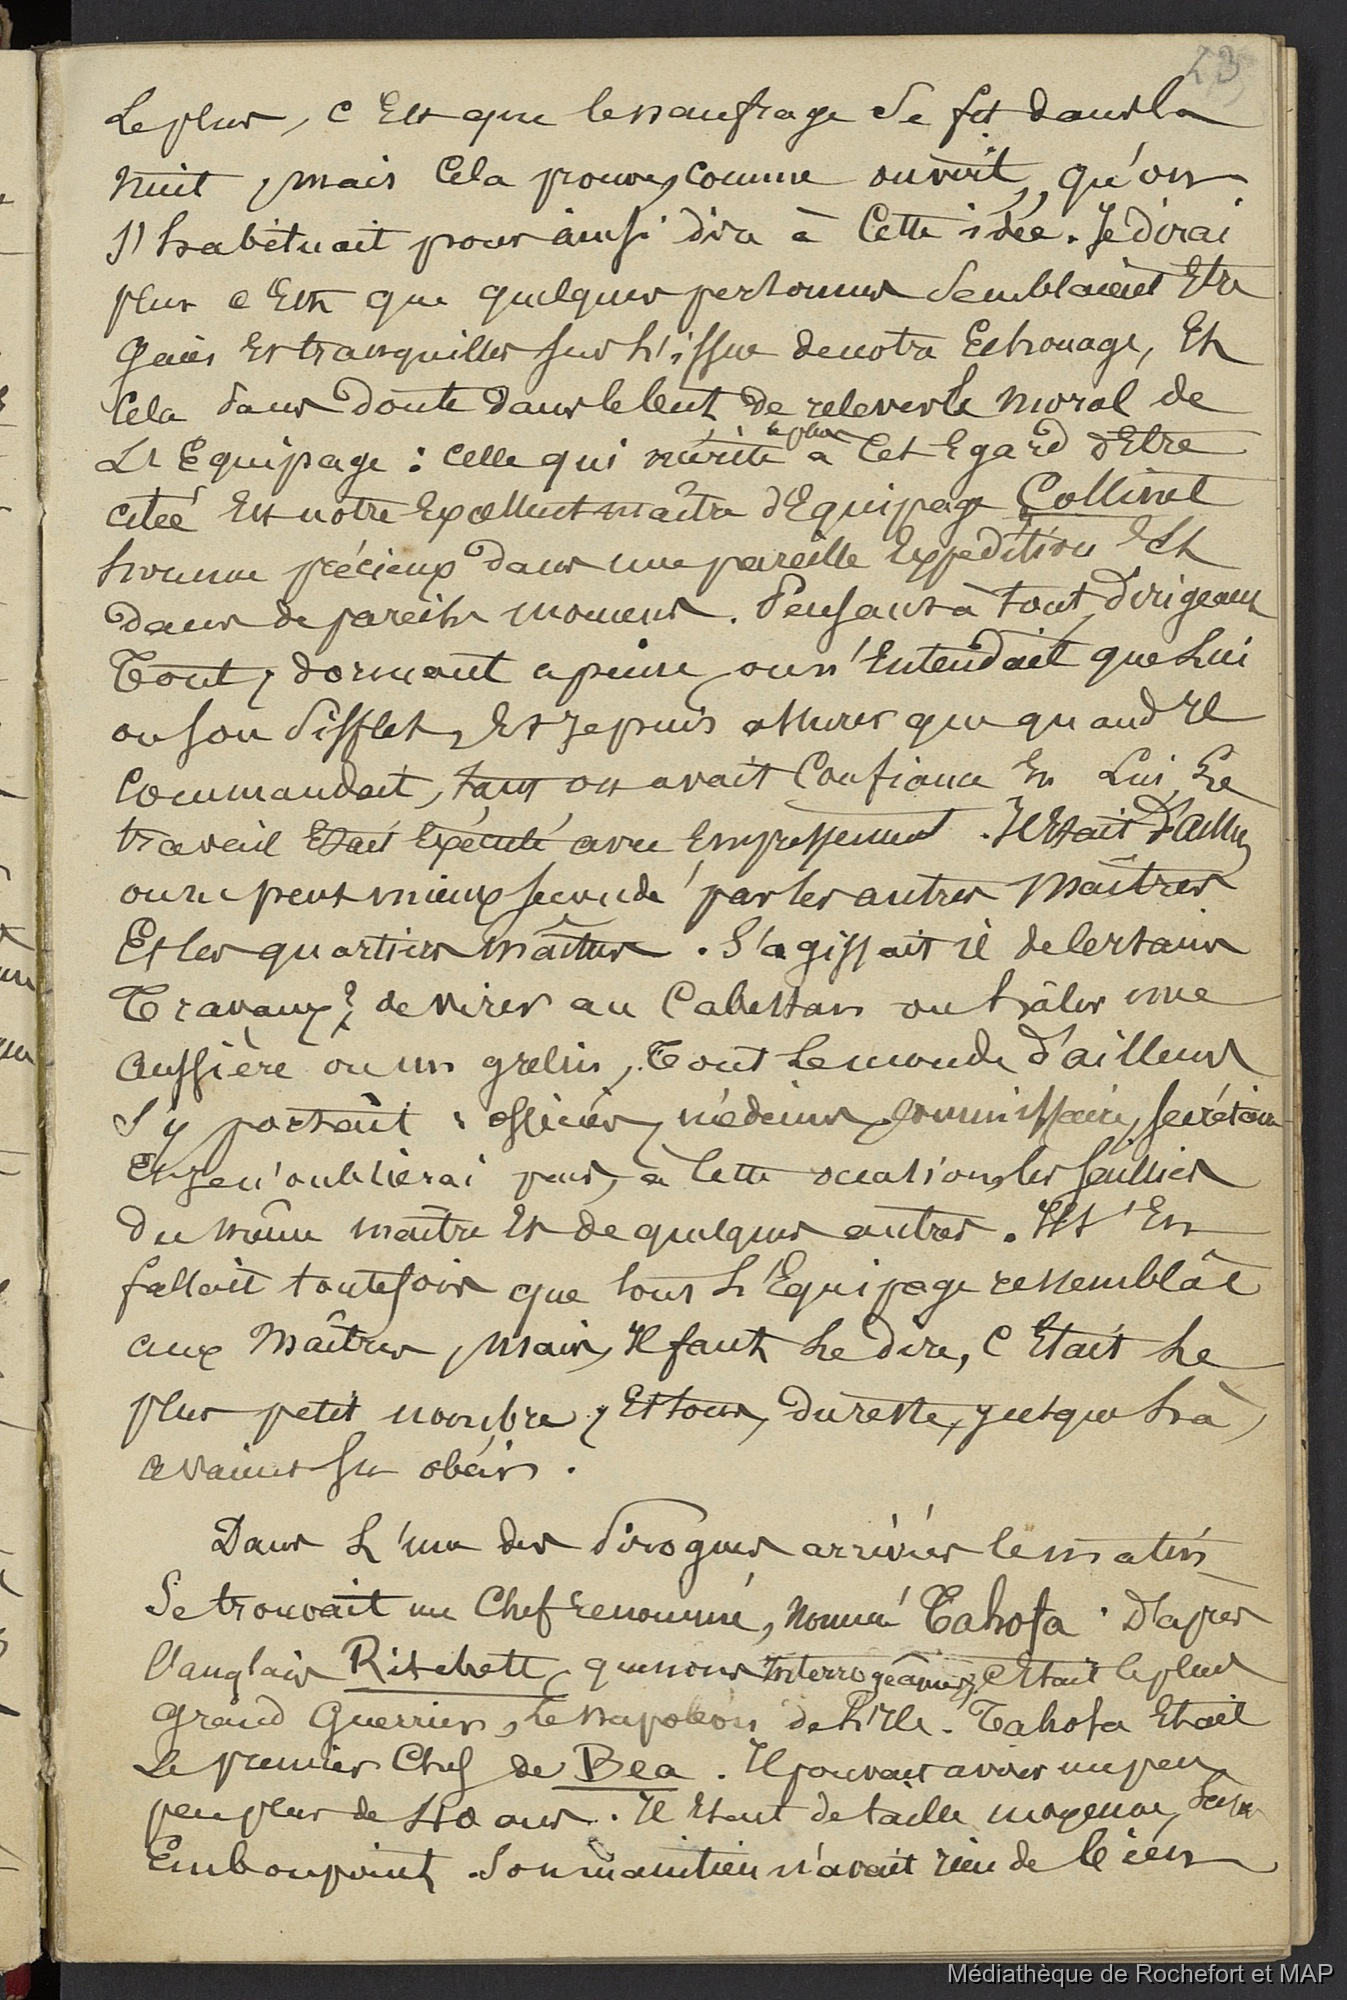 23
Le plus, c'Est que le naufrage Se fit dans la
nuit, mais Cela prouve, comme on voit, qu'on
s'habituait pour ainsi dire à Cette idée. Je dirai
plus c'Est que quelques personnes Semblaient Etre
Gaies Et tranquilles sur L'issue de notre Echouage, Et
Cela Sans Doute Dans le but de relever le moral de
L'Equipage : Celle qui mérite le plus à Cet Egard d'Etre
citée Est notre Excellent maître d'Equipage Collinet
homme précieux Dans une pareille Expédition Et
Dans de pareils momens. Pensant à tout, Dirigeant
Tout, dormant à peine, on n'Entendait que Lui
ou Son Sifflet, Et Je puis assurer que quand Il
Commandait, tant on avait Confiance En Lui, Le
travail Etait Exécuté avec Empressement. Il Etait D'Ailleurs
on ne peut mieux secondé par les autres Maîtres
Et les quartiers maîtres. S'agissait il de Certains
Travaux? de virer au Cabestan ou hâler une
Aussière ou un grelin, Tout Le monde d'ailleurs
S'y portait : officiers, médecins, Commissaire, secrétaire
Et Je n'oublierai pas, à Cette occasion, les Saillies
Du même maître Et de quelques autres. Il s'En
fallait toutefois que tous L'Equipage ressemblât
aux Maîtres, Mais, Il faut Le dire, C'Etait Le
plus petit nombre, Et tous, du reste, jusque Là,
avaient su obéir.
Dans L'une des Pirogues arrivées le matin
Se trouvait un Chef renommé, Nommé Tahofa. D'après
l'anglais Ritchett, que nous Interrogeâmes, c'Etait le plus
Grand Guerrier, Le napoléon de L'Ile. Tahofa Etait
Le premier Chef de Béa. Il pouvait avoir un peu
peu plus de 40 ans. Il Etait de taille moyenne, Sans
Embonpoint. Son maintien n'avait rien de bien
Médiathèque de Rochefort et MAP